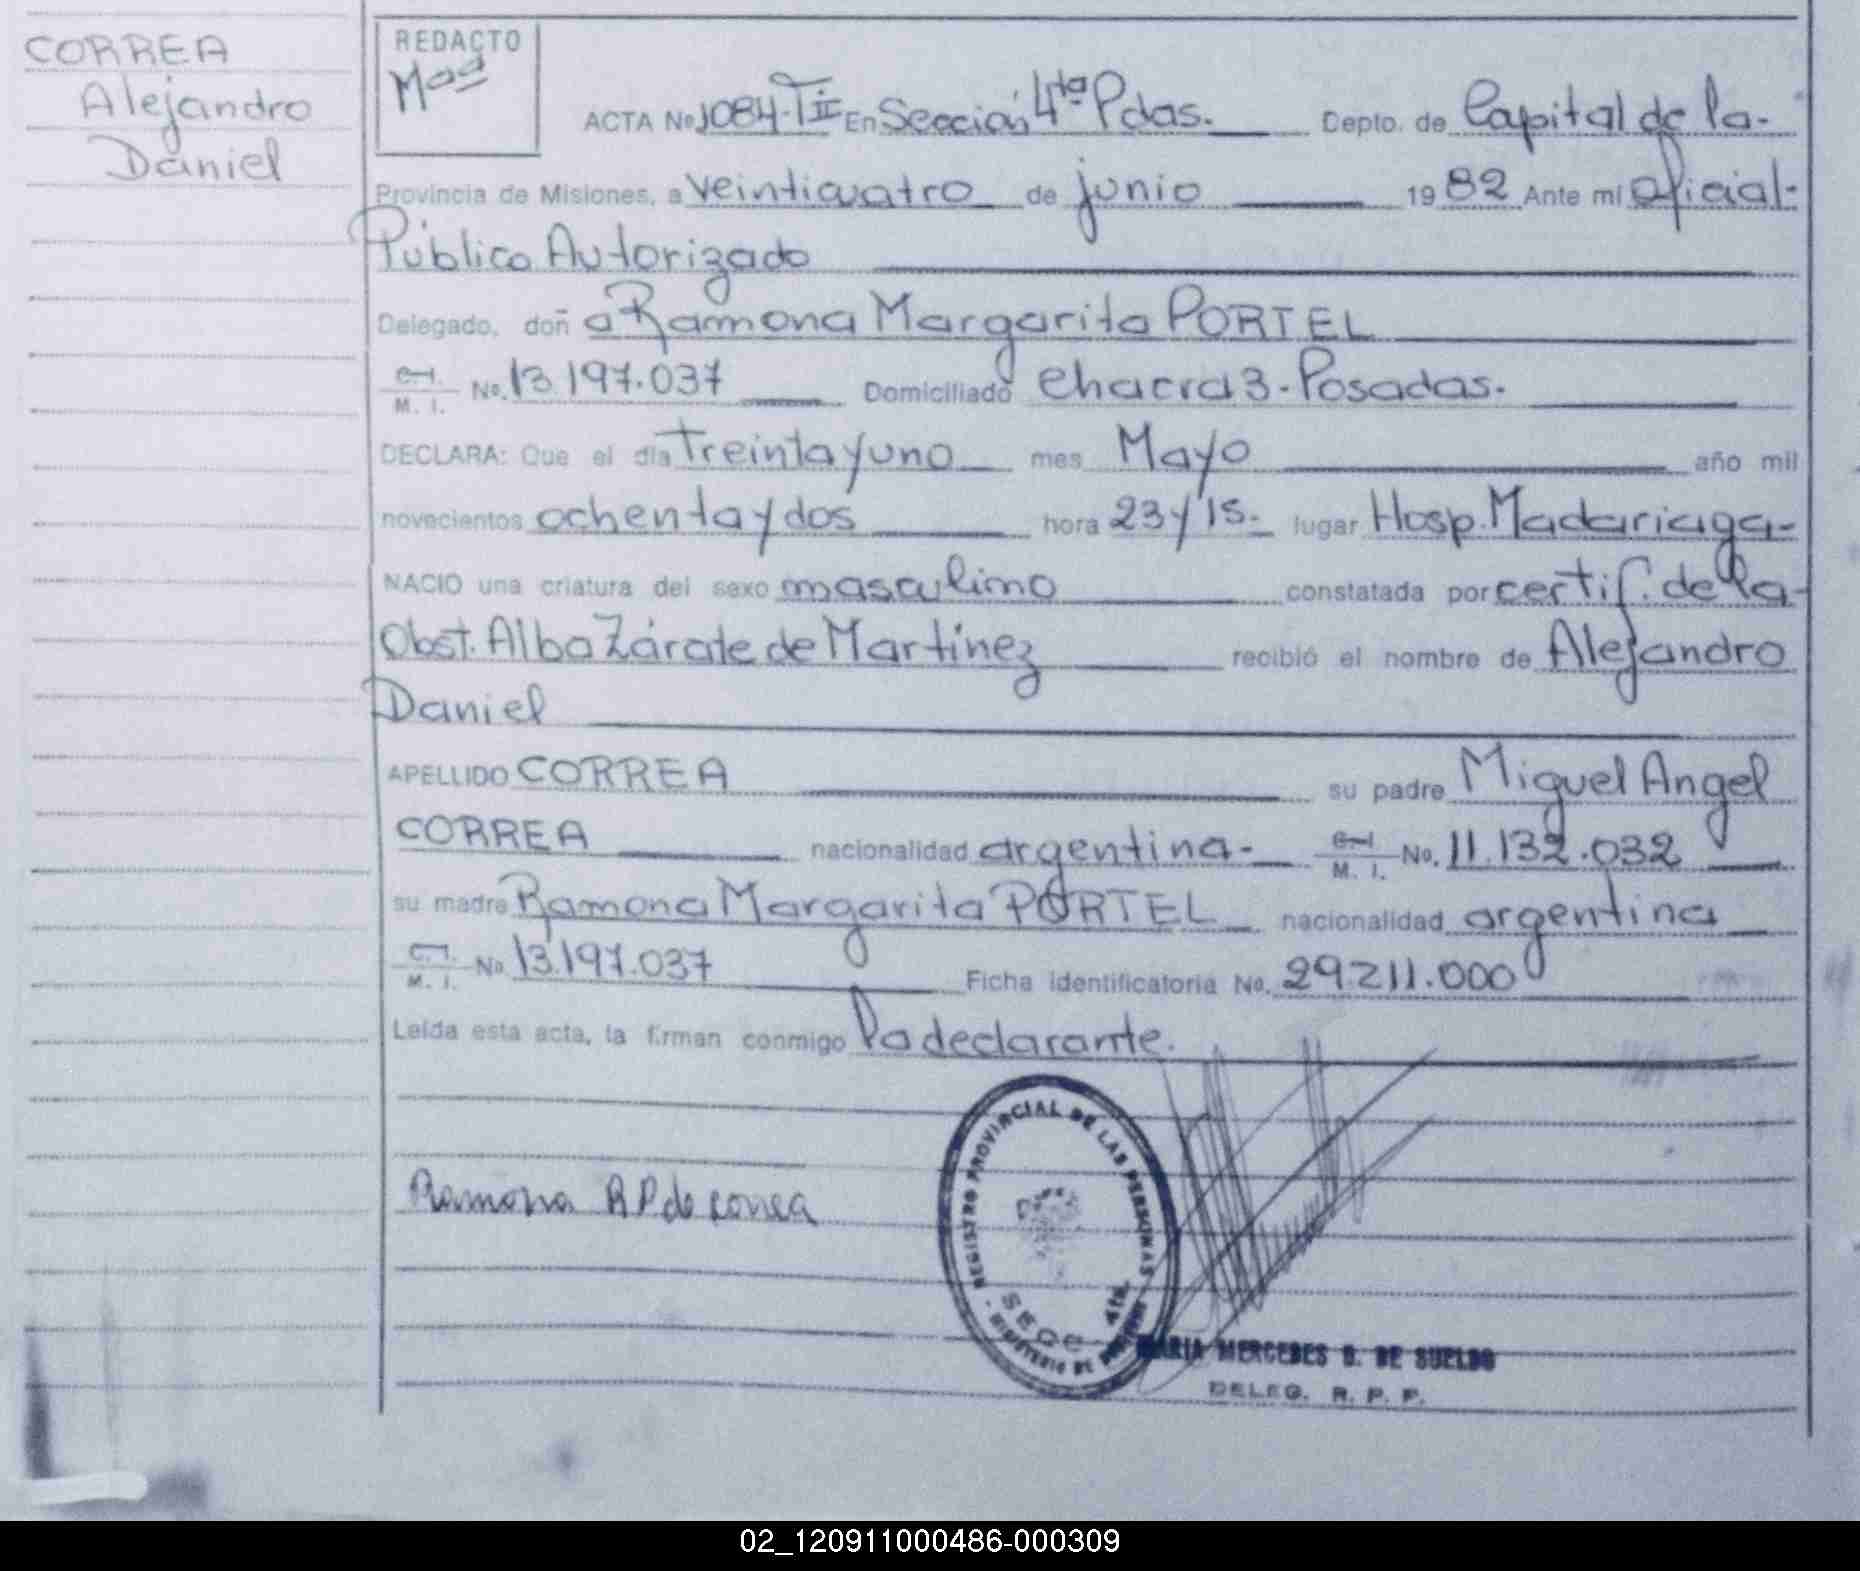 CORREA
Alejandro
Daniel
REDACTO
ACTA No 1084-T II En Sección 4ta Pdas. Depto. de Capital de la-
Provincia de Misiones, a veinticuatro de junio 1982 Ante mi oficial-
Público Autorizado
Delegado, doña Ramona Margarita PORTEL
C.I. M. I. No. 13.197.037 Domiciliado Chacra 3-Posadas.
DECLARA: Que el día Treinta y uno mes Mayo año mil
novecientos ochenta y dos hora 23 y 15.- lugar Hosp. Madariaga-
NACIO una criatura del sexo masculino constatada por certif. de la-
Obst. Alba Zárate de Martínez recibió el nombre de Alejandro
Daniel
APELLIDO CORREA su padre Miguel Angel
CORREA nacionalidad argentina- C.I. M. I. No. 11.132.032
su madre Ramona Margarita PORTEL nacionalidad argentina
C.I. M. I. No 13.197.037 Ficha identificatoria No. 29.211.000
Leída esta acta, la firman conmigo la declarante.
REGISTRO PROVINCIAL DE LAS PERSONAS
SECC 4ta.
MINISTERIO DE
Ramona P. de Correa
MARIA MERCEDES D. DE SUELDO
DELEG. R. P. P.
02_120911000486-000309